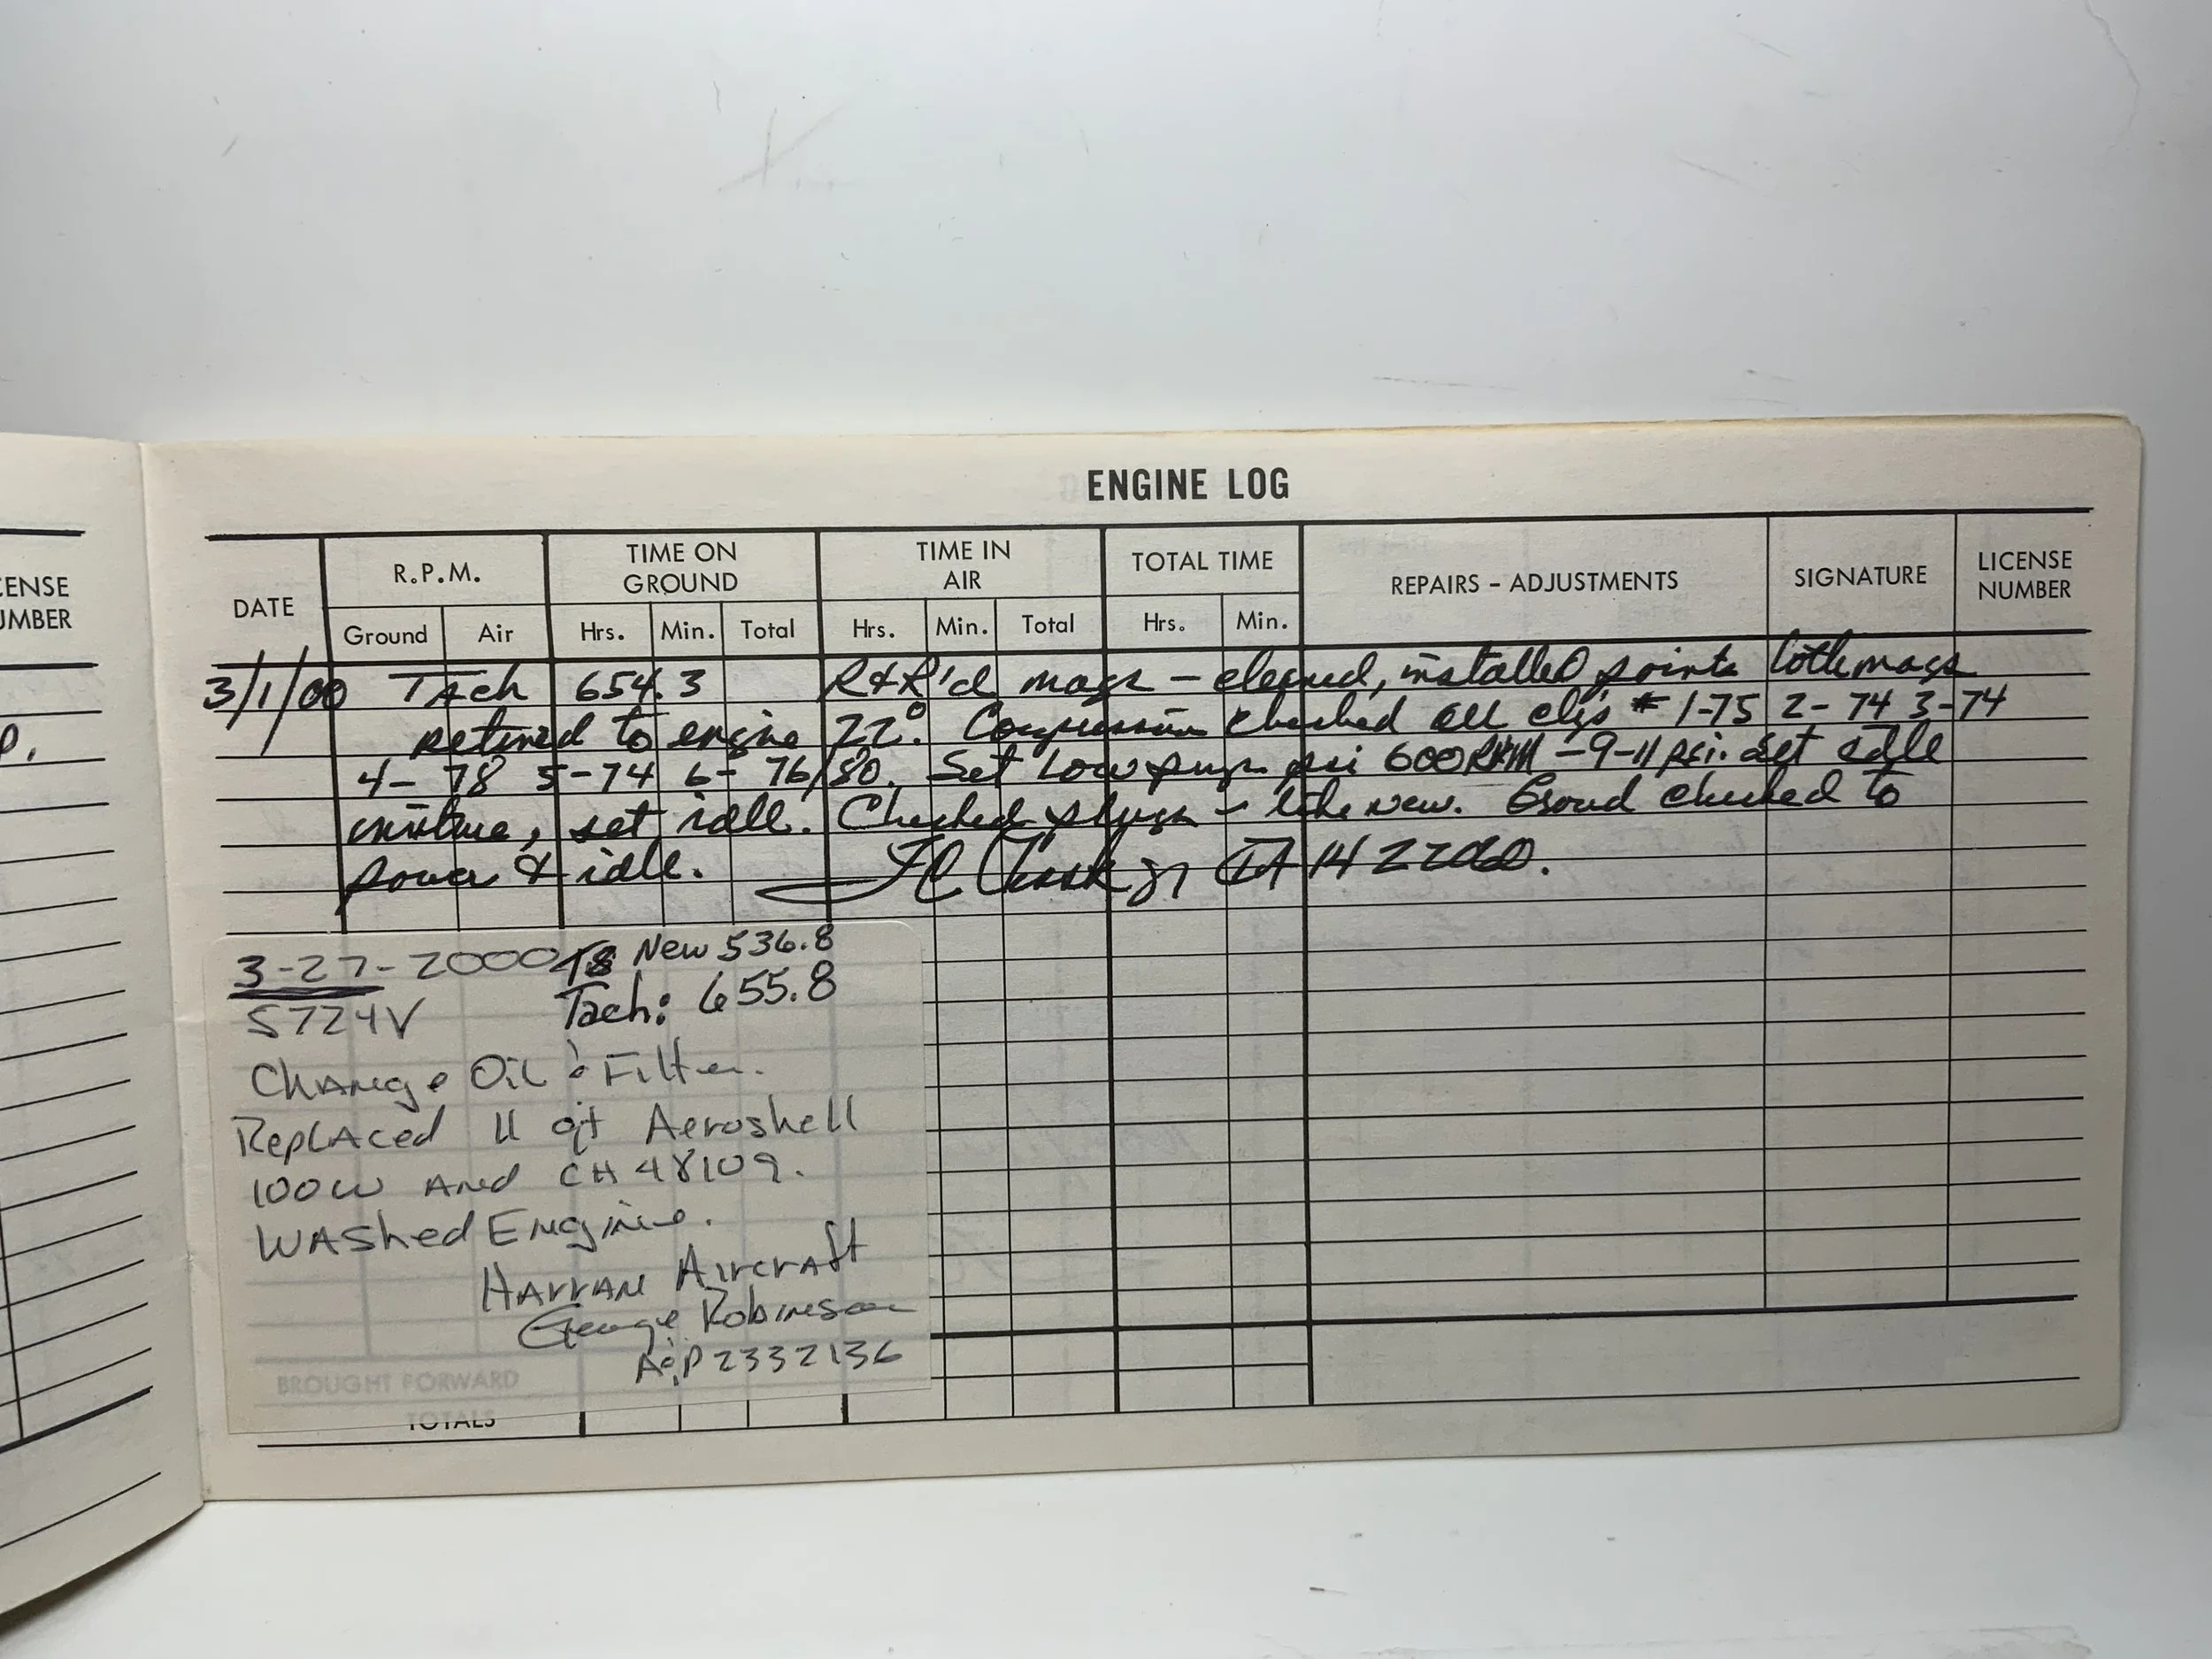 ENGINE LOG
CENSE
UMBER
P.
DATE
R.P.M.
TIME ON
GROUND
TIME IN
AIR
TOTAL TIME
REPAIRS - ADJUSTMENTS
SIGNATURE
LICENSE
NUMBER
Ground Air Hrs. Min. Total Hrs. Min. Total Hrs. Min.
3/1/00 Tach 654.3 R&R'd mags - cleaned, installed points both mags
retimed to engine 22°. Compression checked all cly's # 1-75 2-74 3-74
4-78 5-74 6-76/80. Set Low psi 600 RPM - 9-11 psi. Set idle
mixture, set idle. Checked plugs - like new. Groud checked to
power & idle. IA
3-27-2000 New 536.8
5724V Tach: 655.8
Change Oil & Filter.
Replaced 11 qt Aeroshell
100W And CH 48109.
Washed Engine.
Harran Aircraft
George Robinson
A&P 2332136
BROUGHT FORWARD
TOTALS